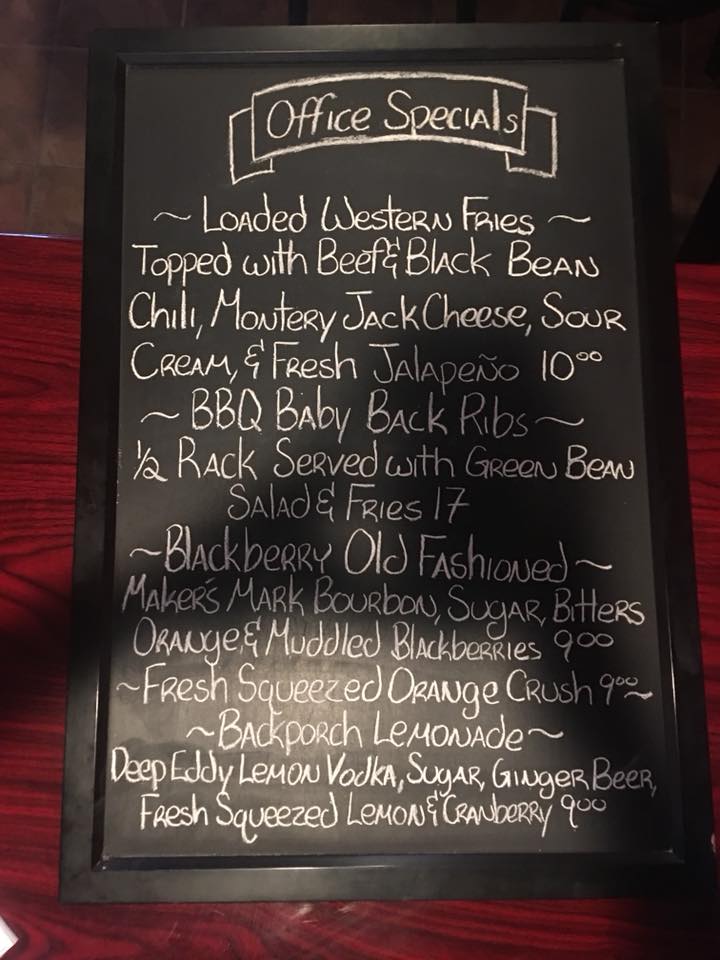 Office Specials
~ Loaded Western Fries ~
Topped with Beef & Black Bean
Chili, Montery Jack Cheese, Sour
Cream, & Fresh Jalapeño 10⁰⁰
~ BBQ Baby Back Ribs ~
½ Rack Served with Green Bean
Salad & Fries 17
~ Blackberry Old Fashioned ~
Maker's Mark Bourbon, Sugar, Bitters
Orange, & Muddled Blackberries 9⁰⁰
~ Fresh Squeezed Orange Crush 9⁰⁰ ~
~ Backporch Lemonade ~
Deep Eddy Lemon Vodka, Sugar, Ginger Beer,
Fresh Squeezed Lemon & Cranberry 9⁰⁰